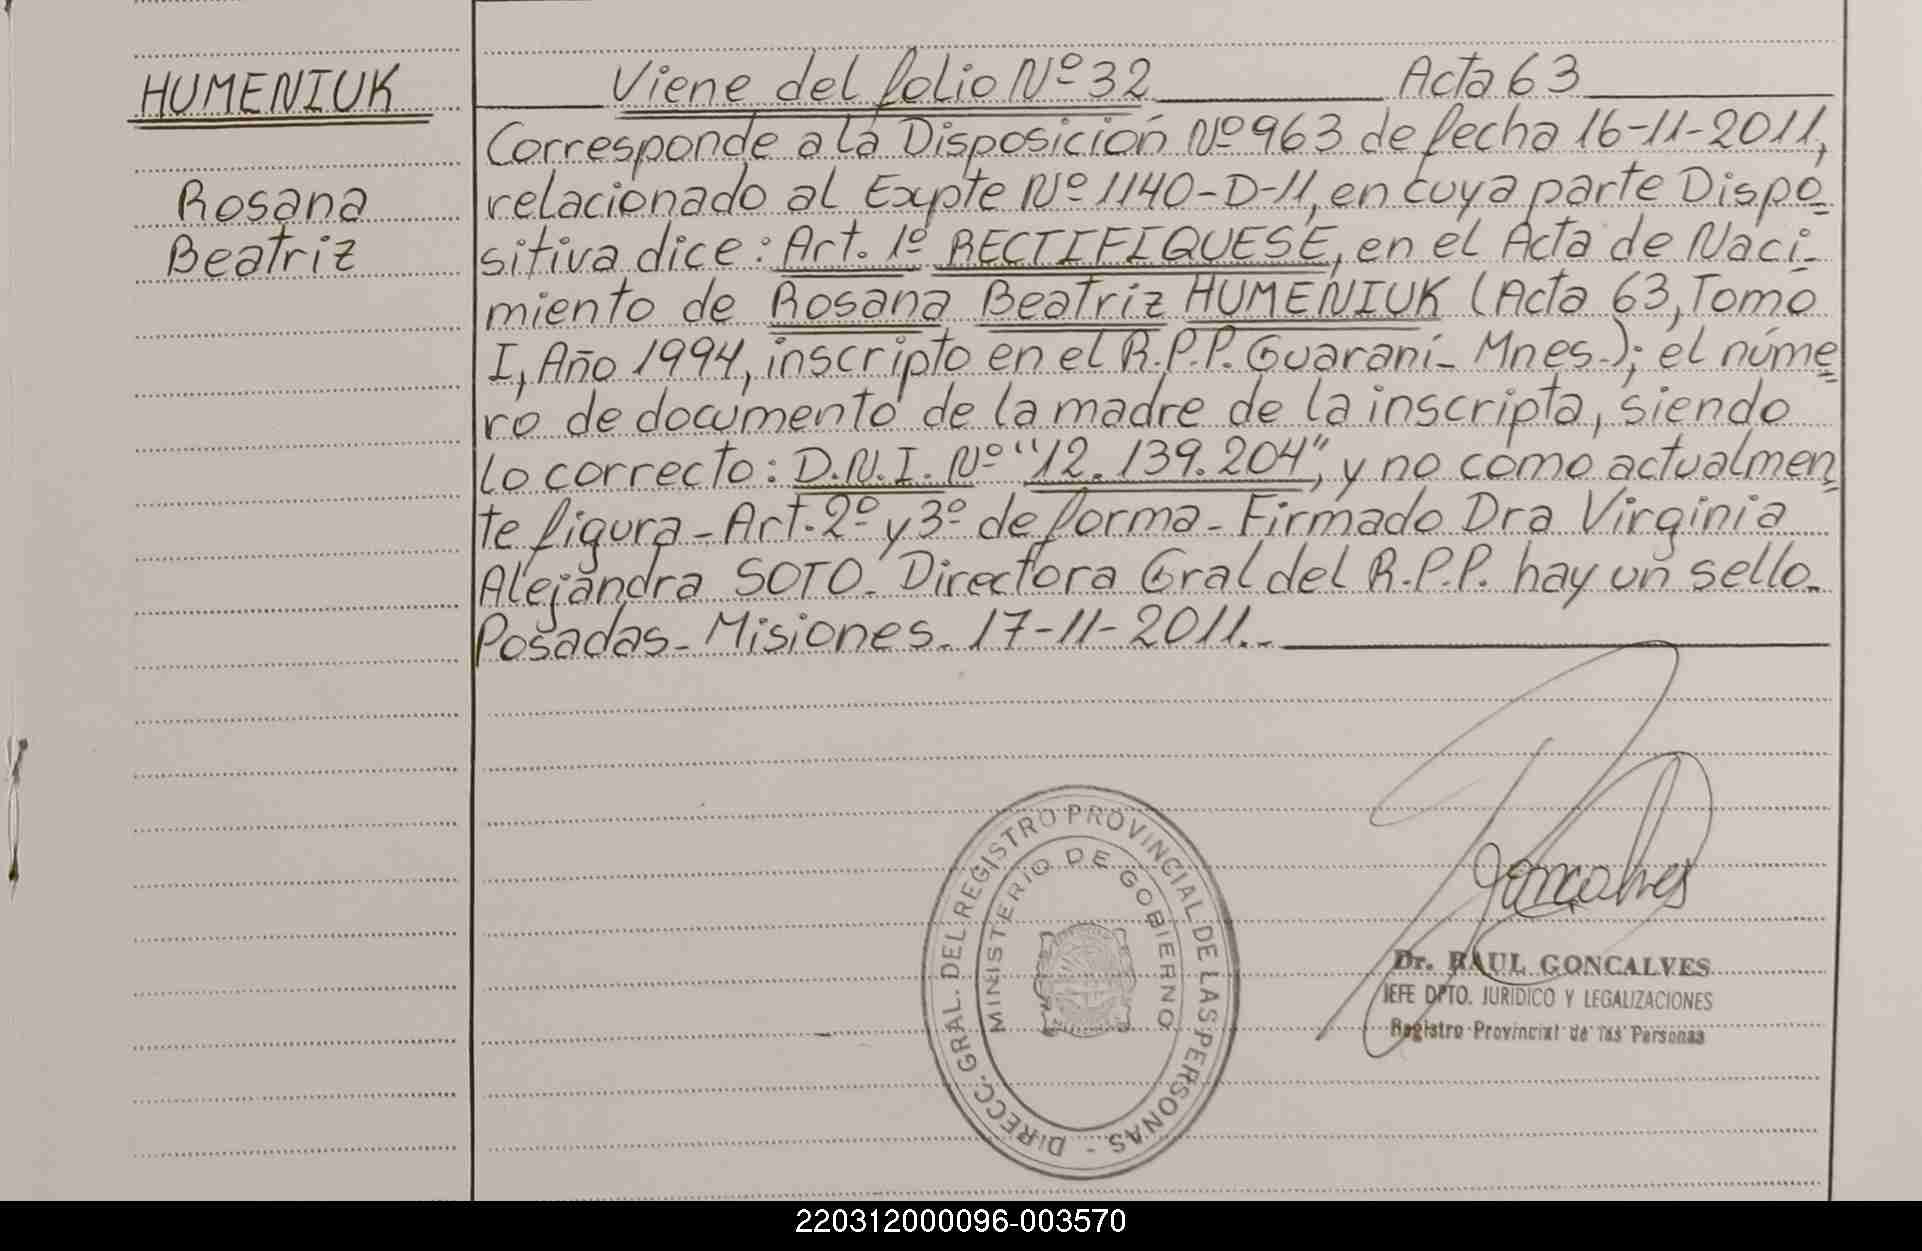 HUMENIUK
Rosana
Beatriz
Viene del folio Nº 32 Acta 63
Corresponde a la Disposición Nº 963 de fecha 16-11-2011,
relacionado al Expte Nº 1140-D-11, en cuya parte Dispo-
sitiva dice: Art. 1º RECTIFIQUESE, en el Acta de Naci-
miento de Rosana Beatriz HUMENIUK (Acta 63, Tomo
I, Año 1994, inscripto en el R.P.P. Guaraní- Mnes.); el núme=
ro de documento de la madre de la inscripta, siendo
lo correcto: D.N.I. Nº "12.139.204", y no como actualmen=
te figura- Art. 2º y 3º de forma- Firmado Dra Virginia
Alejandra SOTO- Directora Gral del R.P.P. hay un sello-
Posadas- Misiones- 17-11-2011.-
DIRECC. GRAL. DEL REGISTRO PROVINCIAL DE LAS PERSONAS -
MINISTERIO DE GOBIERNO
Goncalves
Dr. RAUL GONCALVES
JEFE DPTO. JURIDICO Y LEGALIZACIONES
Registro Provincial de las Personas
220312000096-003570